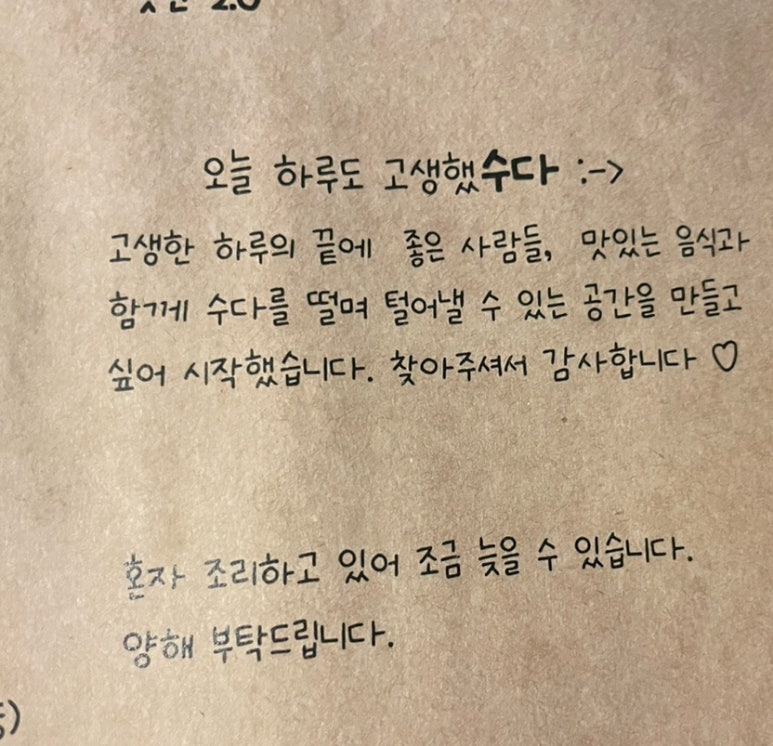 2.0
오늘 하루도 고생했수다 :->
고생한 하루의 끝에 좋은 사람들, 맛있는 음식과
함께 수다를 떨며 털어낼 수 있는 공간을 만들고
싶어 시작했습니다. 찾아주셔서 감사합니다 ♡
혼자 조리하고 있어 조금 늦을 수 있습니다.
양해 부탁드립니다.